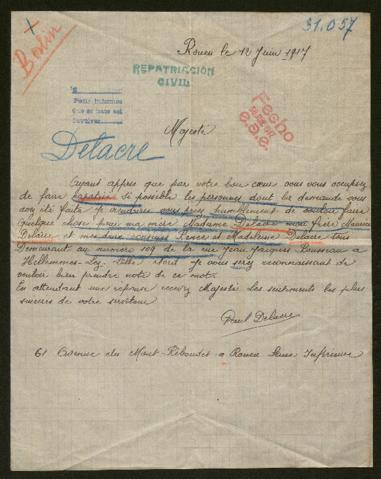 Berlin
31.057
Rouen le 12 Juin 1917
REPATRIACIÓN
CIVIL
Fecho
Majesté
Delacre
Ayant appris que par votre bon cœur vous vous occupez
de faire rapatrier si possible les personnes dont la demande vous
a été faite je viendrai vous prier humblement de vouloir faire
quelque chose pour ma mère Madame Delacre mon frère Maurice
Delacre et mes deux cousines Renée et Madeleine Delacre tous
Demeurant au numéro 109 de la rue Jean Jacques Rousseau à
Hellemmes-Lez-Lille Nord je vous serez reconnaissant de
vouloir bien prendre note de ce mot.
En attendant une réponse recevez Majesté les sentiments les plus
sincères de votre serviteur
Paul Delacre
61 Avenue du Mont-Riboudet à Rouen Seine Inférieure